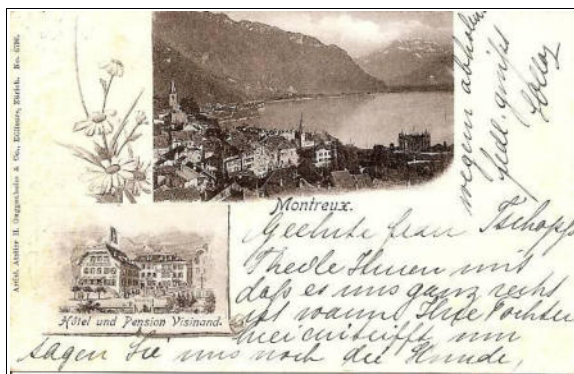 Artist. Atelier H. Guggenheim & Co., Editeurs, Zürich. No. 6796.
Montreux.
Hôtel und Pension Visinand.
Geehrte Frau Tschopp
Theile Ihnen mit
daß es uns ganz recht
ist wann Ihre Tochter
hier eintrifft um
sagen Sie uns noch die Stunde,
wegen abholen.